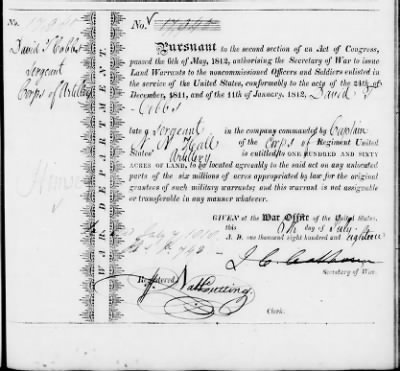 No. 17,940
No. 17,940
David Cobbs
Sergeant
Corps of Artillery
WAR DEPARTMENT.
Pursuant to the second section of an Act of Congress,
passed the 6th of May, 1812, authorising the Secretary of War to issue
Land Warrants to the noncommissioned Officers and Soldiers enlisted in
the service of the United States, conformably to the acts of the 24th of
December, 1811, and of the 11th of January, 1812, David
Cobbs
late a Sergeant in the company commanded by Captain
Hall of the Corps of Regiment United
States' Artillery is entitled to ONE HUNDRED AND SIXTY
ACRES OF LAND, to be located agreeably to the said act on any unlocated
parts of the six millions of acres appropriated by law for the original
grantees of such military warrants; and this warrant is not assignable
or transferable in any manner whatever.
GIVEN at the War Office of the United States,
this day of July
A. D. one thousand eight hundred and eighteen
J. C. Calhoun
Secretary of War.
Registered Nath Cutting
Clerk.